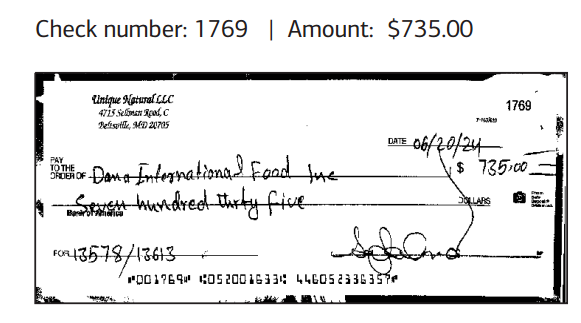 Check number: 1769 | Amount: $735.00
Unique Natural LLC
4715 Sellman Road, C
Beltsville, MD 20705
1769
DATE 06/20/24
PAY TO THE ORDER OF Dana International Food Inc $ 735.00
Seven hundred thirty five DOLLARS
Bank of America
FOR 13578/13613
⑈001769⑈ ⑆052001633⑆ 446052336357⑈